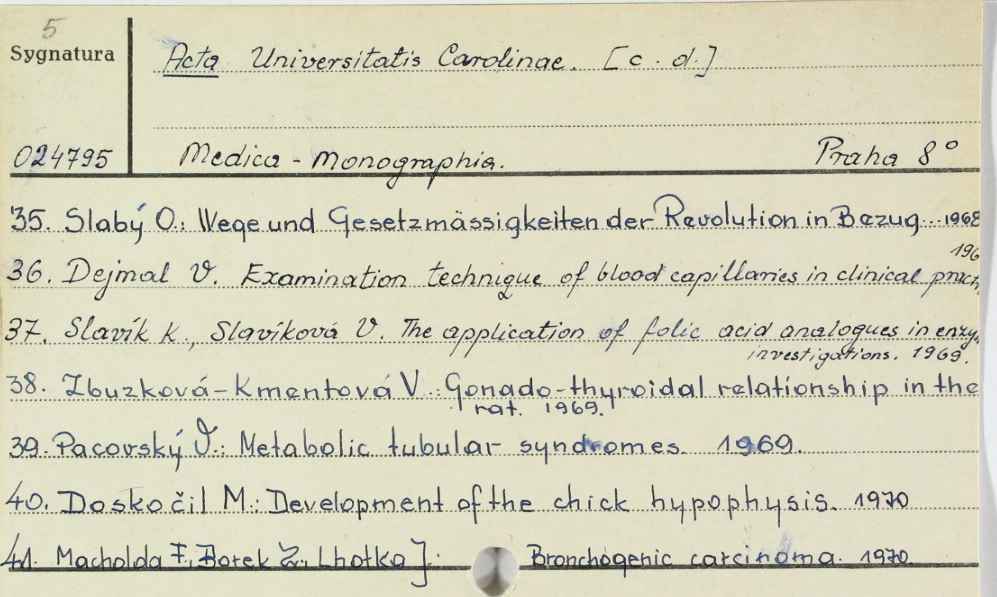 5
Sygnatura
Acta Universitatis Carolinae. [c. d.]
024795
Medica - Monographia.
Praha 8°
35. Slabý O.: Wege und Gesetzmässigkeiten der Revolution in Bezug... 1968
196
36. Dejmal V. Examination technique of blood capillaries in clinical pract
37. Slavík K., Slavíková V. The application of folic acid analogues in enzy.
investigations. 1969.
38. Zbuzková-Kmentová V.: Gonado-thyroidal relationship in the
rat. 1969.
39. Pacovský V.: Metabolic tubular syndromes. 1969.
40. Doskočil M.: Development of the chick hypophysis. 1970
41. Macholda F., Borek Z., Lhotka J.: Bronchogenic carcinoma. 1970.